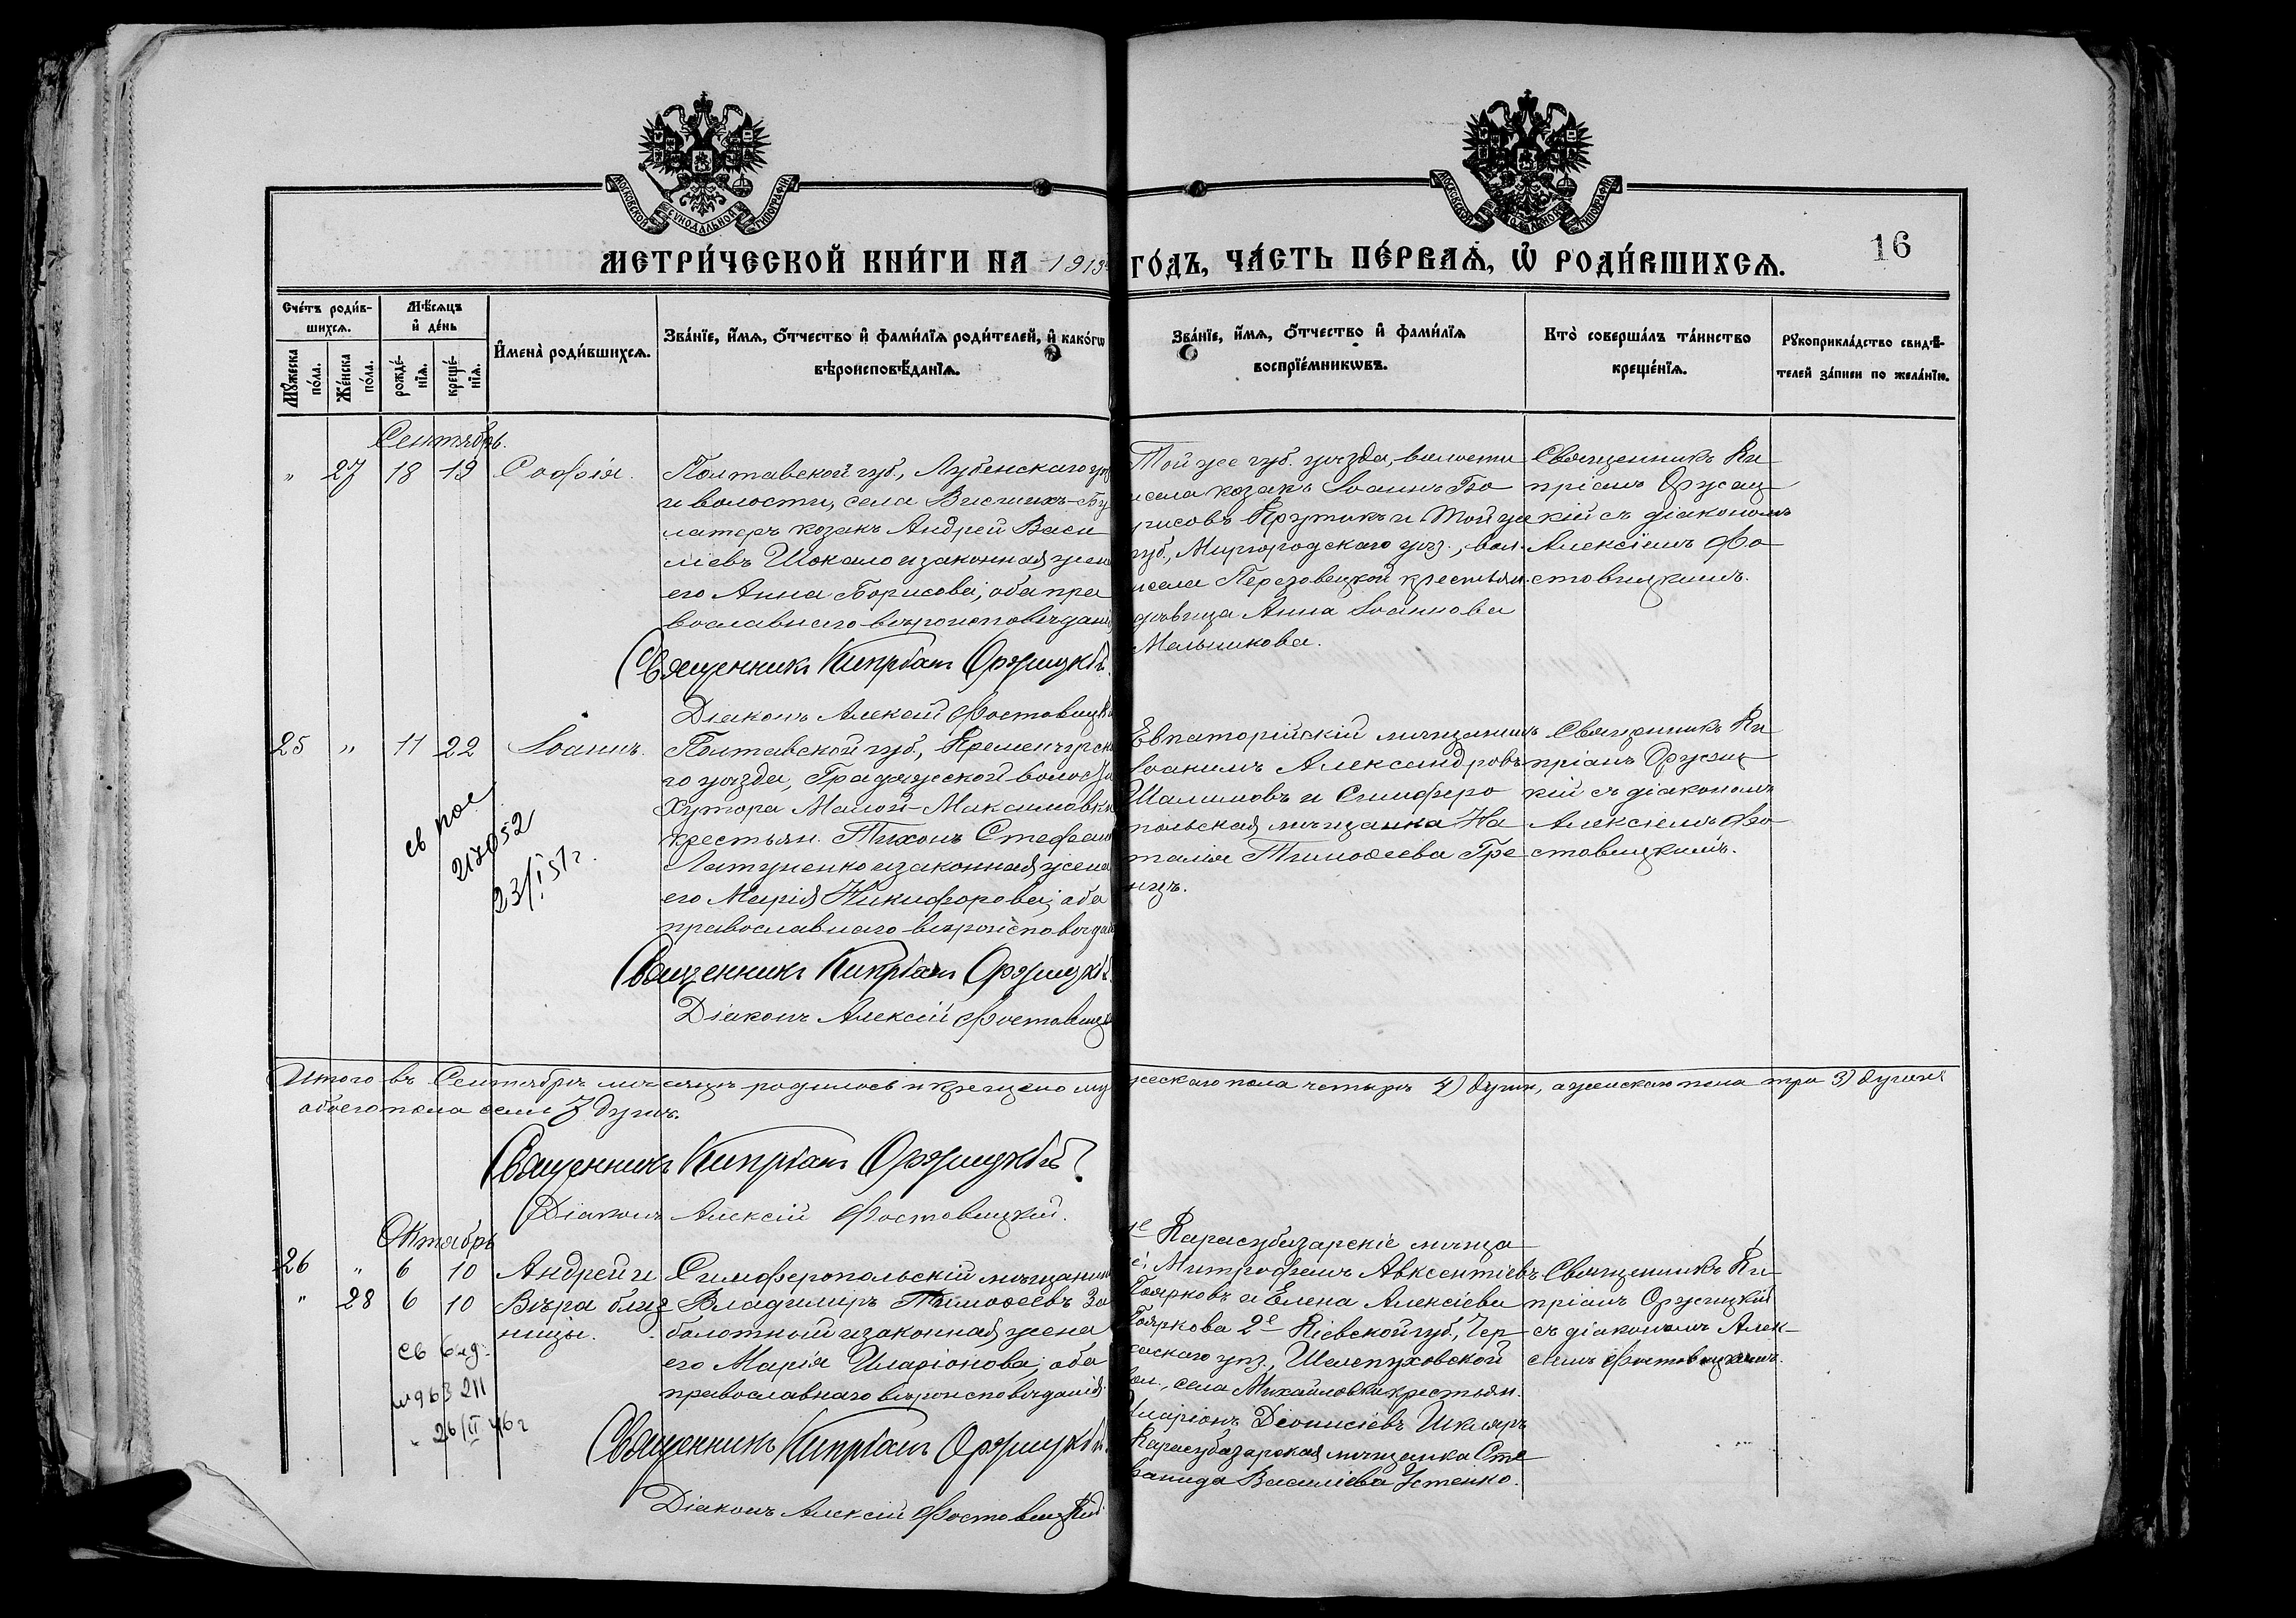 МОСКОВСКОЙ СѴНОДАЛЬНОЙ ТИПОГРАФІИ
МОСКОВСКОЙ СѴНОДАЛЬНОЙ ТИПОГРАФІИ
МЕТРИ́ЧЕСКОЙ КНИ́ГИ НА 1913
ГО́ДЪ, ЧА́СТЬ ПЕ́РВАѦ, Ѡ҆ РОДИ́ВШИХСѦ.
16
Сче́тъ роди́в-
шихсѧ.
Мѣ́сѧцъ
и҆ де́нь
Мꙋ́жеска по́ла.
Же́нска по́ла.
рожде́-нїѧ.
креще́-нїѧ.
И҆мена̀ роди́вшихсѧ.
Зва́нїе, и҆́мѧ, ѻ҆́тчество и҆ фами́лїѧ роди́телей, и҆ како́гѡ
вѣроисповѣ́данїѧ.
Зва́нїе, и҆́мѧ, ѻ҆́тчество и҆ фами́лїѧ
воспрїе́мникѡвъ.
Кто̀ соверша́лъ та́инство
креще́нїѧ.
Рꙋкоприкла́дство свидѣ́-
телей за́писи по жела́нїю.
Сентябрь.
" 27 18 19 Софія.
Полтавской губ., Лубенскаго уѣз
и волости, села Висших-Бу
латецъ козакъ Андрей Васи
ліевъ Шокало и законная жена
его Анна Борисова, оба пра
вославнаго вѣроисповѣданія
Священникъ Кипріанъ Оржицкій.
Діаконъ Алексій Фостовицкі
Той же губ. уѣзда, волости
и села козакъ Іоаннъ Бо
рисовъ Крутикъ и той же
губ., Миргородскаго уѣз., вол.
и села крестьян.
дѣвица Анна Іоаннова
Мельникова.
Священникъ Ки
пріанъ Оржиц
кій съ діакономъ
Алексіемъ Фо
стовицкимъ.
25 " 11 22 Іоаннъ.
св пол
217052
23/I 51г.
Полтавской губ., Кременчугска
го уѣзда, Градижеской волости
хутора Малой-Максимовки
крестьян. Тихонъ Стефанов
Латуненко и законная жена
его Марія Никифорова, оба
православнаго вѣроисповѣдан
Священникъ Кипріанъ Оржицкій.
Діаконъ Алексій Фостовицк
Евпаторійскій мѣщанинъ
Іоакимъ Александровъ
Шалимовъ и Симферо
польская мѣщанка На
талія Тимоѳеева Гре
нцъ.
Священникъ Ки
пріанъ Оржиц
кій съ діакономъ
Алексіемъ Фо
стовицкимъ.
Итого въ Сентябрѣ мѣсяцѣ родилось и крещено му
жескаго пола четыре 4) души, а женскаго пола три 3) души
обоего пола семь 7 душъ.
Священникъ Кипріанъ Оржицкій
Діаконъ Алексій Фостовицкій.
Октябрь
26 " 6 10 Андрей и
" 28 6 10 Вѣра близ
ницы.
св
963 211
26/II 46г
Симферопольскій мѣщанин
Владиміръ Тимоѳеевъ За
болотный и законная жена
его Марія Иларіонова, оба
православнаго вѣроисповѣданія
Священникъ Кипріанъ Оржицкій.
Діаконъ Алексій Фостовицкій
Карасубазарскіе мѣща
Митрофанъ Авксентіевъ
Поярковъ и Елена Алексіева
Пояркова 2е Кіевской губ., Чер
касскаго уѣз., Шелепуховской
вол., села Михайловки крестьян.
Иларіонъ Діонисіевъ Шкляръ
Карасубазарская мѣщанка Сте
фанида Василіева Устенко.
Священникъ Ки
пріанъ Оржицкій
съ діакономъ Алек
сіемъ Фостовицкимъ.